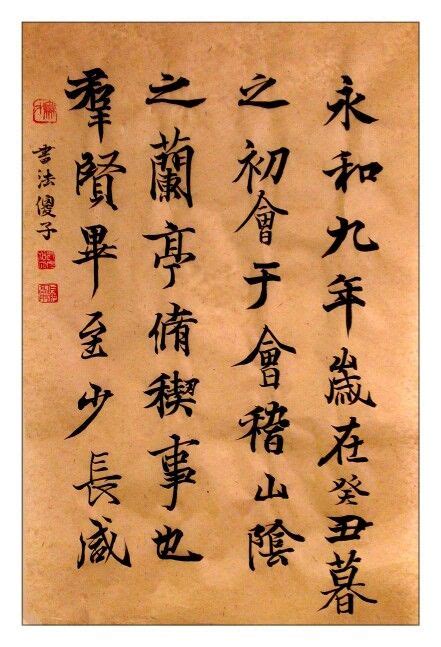 永和九年歲在癸丑暮
之初會于會稽山陰
之蘭亭脩稧事也
羣賢畢至少長咸
書法傻子